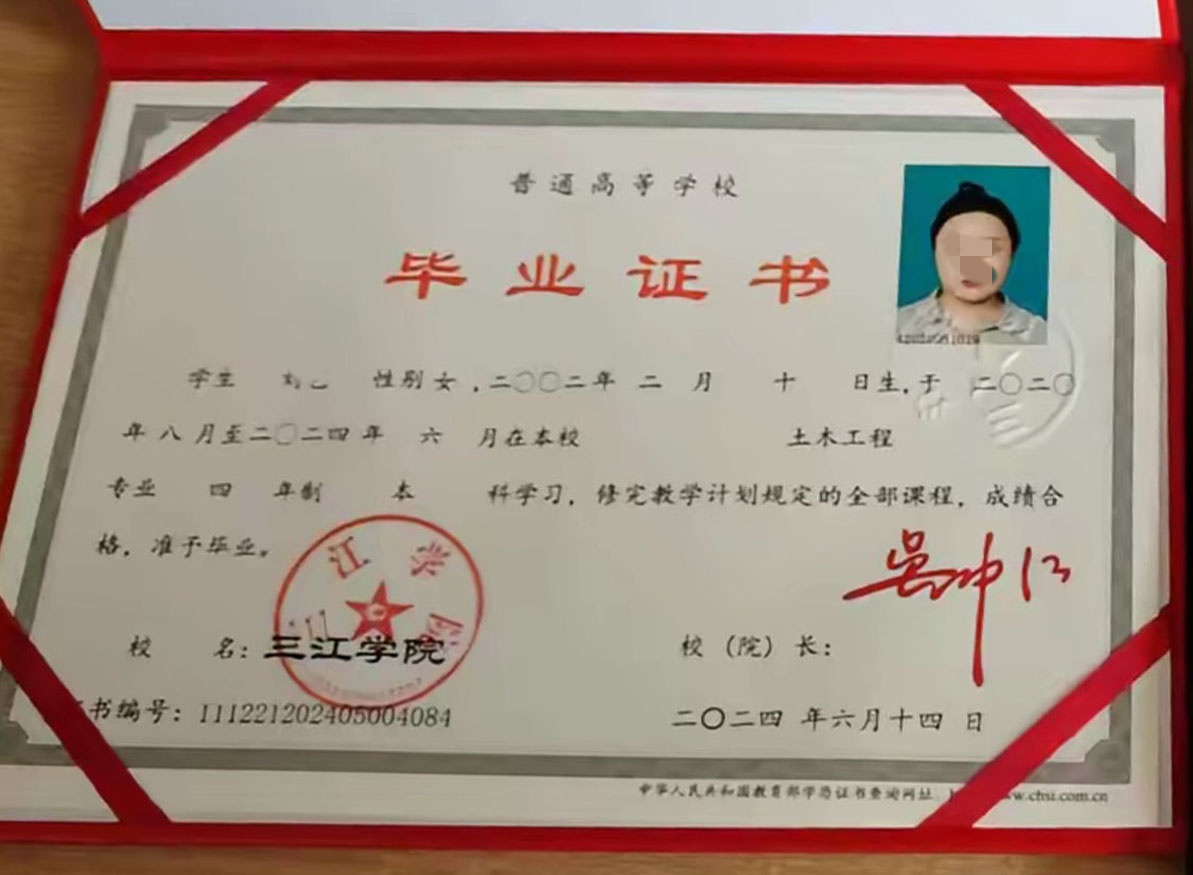 普通高等学校
毕业证书
学生 性别女,二〇〇二年 二 月 十 日生,于 二〇二〇
年八月至二〇二四年 六 月在本校 土木工程
专业 四 年制 本 科学习,修完教学计划规定的全部课程,成绩合
格,准予毕业。
校 名:三江学院 校(院)长:
书编号:111221202405004084 二〇二四 年六月十四 日
中华人民共和国教育部学历证书查询网址 www.chsi.com.cn